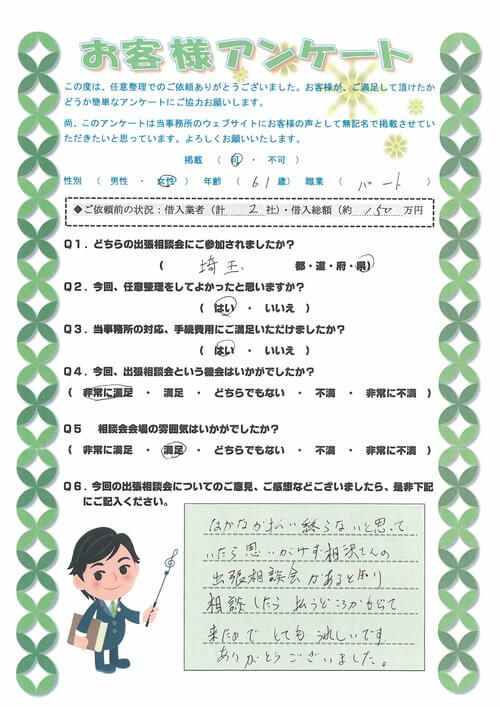 お客様アンケート
この度は、任意整理でのご依頼ありがとうございました。お客様が、ご満足して頂けたか
どうか簡単なアンケートにご協力お願いします。
尚、このアンケートは当事務所のウェブサイトにお客様の声として無記名で掲載させてい
ただきたいと思っています。よろしくお願いいたします。
掲載 ( 可 ・ 不可 )
性別 ( 男性 ・ 女性 ) 年齢 ( 61 歳) 職業 ( パート )
◆ご依頼前の状況：借入業者（計 2 社）・借入総額（約 150 万円
Q1．どちらの出張相談会にご参加されましたか？
( 埼玉 都・道・府・県)
Q2．今回、任意整理をしてよかったと思いますか？
( はい ・ いいえ )
Q3．当事務所の対応、手続費用にご満足いただけましたか？
( はい ・ いいえ )
Q4．今回、出張相談会という機会はいかがでしたか？
( 非常に満足 ・ 満足 ・ どちらでもない ・ 不満 ・ 非常に不満 )
Q5 相談会会場の雰囲気はいかがでしたか？
( 非常に満足 ・ 満足 ・ どちらでもない ・ 不満 ・ 非常に不満 )
Q6．今回の出張相談会についてのご意見、ご感想などございましたら、是非下記
にご記入ください。
はかなか払い終らないと思って
いたら思いがけず相沢さんの
出張相談会があると知り
相談したら払うどころかもどって
来たので とても うれしいです
ありがとうございました。